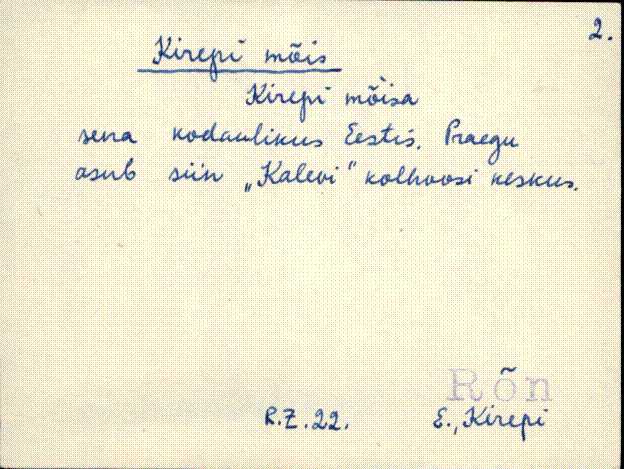 2.
Kirepi mõis
Kirepi mõisa
sena kodaulikus Eestis. Praegu
asub siin „Kalevi" kolhoosi keskus.
Rõn
R.Z.22. E., Kirepi